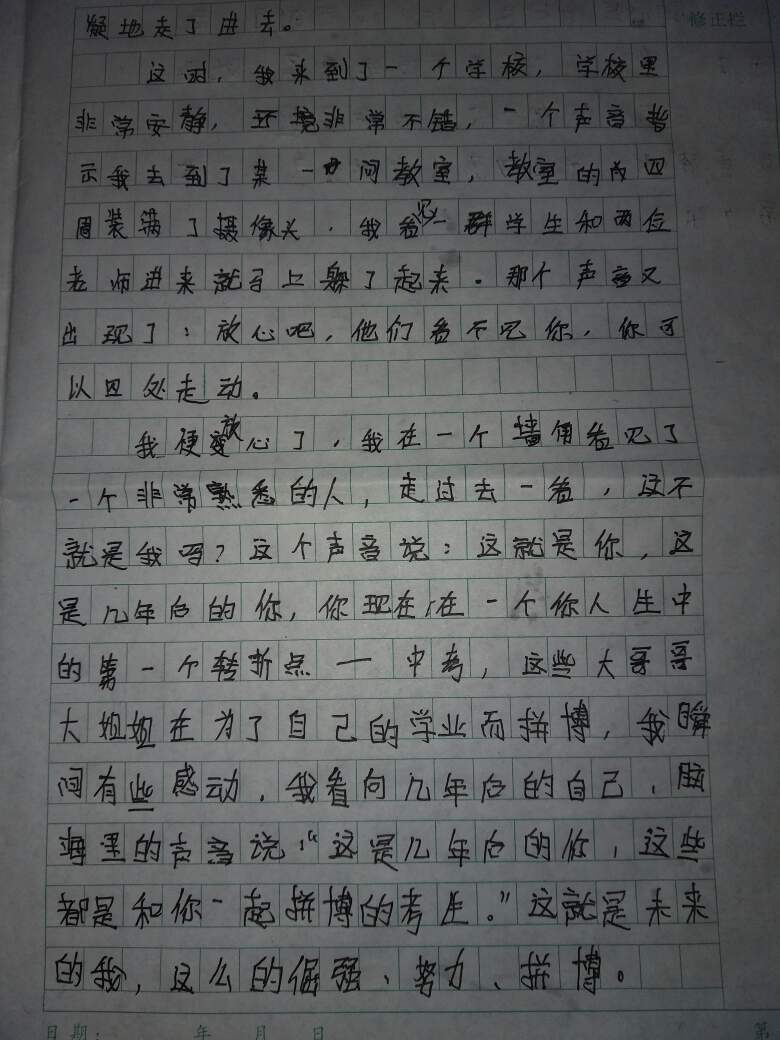 疑地走了进去。
修正栏
这时，我来到了一个学校，学校里
非常安静，环境非常不错，一个声音指
示我去到了某一间教室，教室的内四
周装满了摄像头，我看见一群学生和两位
老师进来就马上躲了起来。那个声音又
出现了：放心吧，他们看不见你，你可
以四处走动。
我便放心了，我在一个墙角看见了
一个非常熟悉的人，走过去一看，这不
就是我吗？这个声音说：这就是你，这
是几年后的你，你现在在一个你人生中
的第一个转折点一中考，这些大哥哥
大姐姐在为了自己的学业而拼博，我瞬
间有些感动，我看向几年后的自己，脑
海里的声音说：“这是几年后的你，这些
都是和你一起拼博的考生。”这就是未来
的我，这么的倔强、努力、拼博。
日期： 年 月 日 第